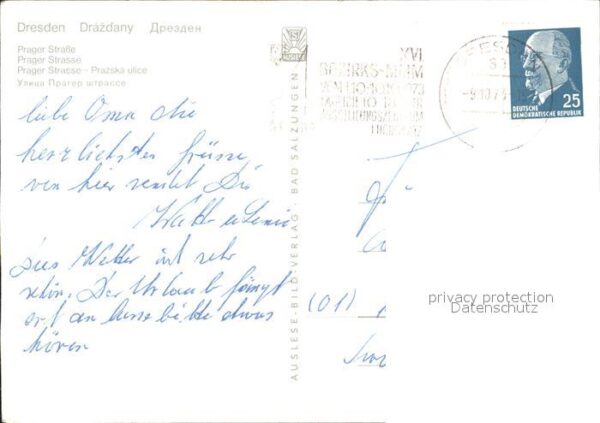 Dresden Drážďany Дрезден
Prager Straße
Prager Strasse
Prager Strasse - Pražska ulice
Улица Прагер штрассе
liebe Oma die
herzlichsten Grüsse
von hier sendet Dir
Walter
Das Wetter ist sehr
schön. Der Urlaub fängt
erst an lasse bitte etwas
hören
AUSLESE-BILD-VERLAG · BAD SALZUNGEN
XVI.
BEZIRKS-MMM
DRESDEN
25
DEUTSCHE
DEMOKRATISCHE REPUBLIK
(01)
privacy protection
Datenschutz